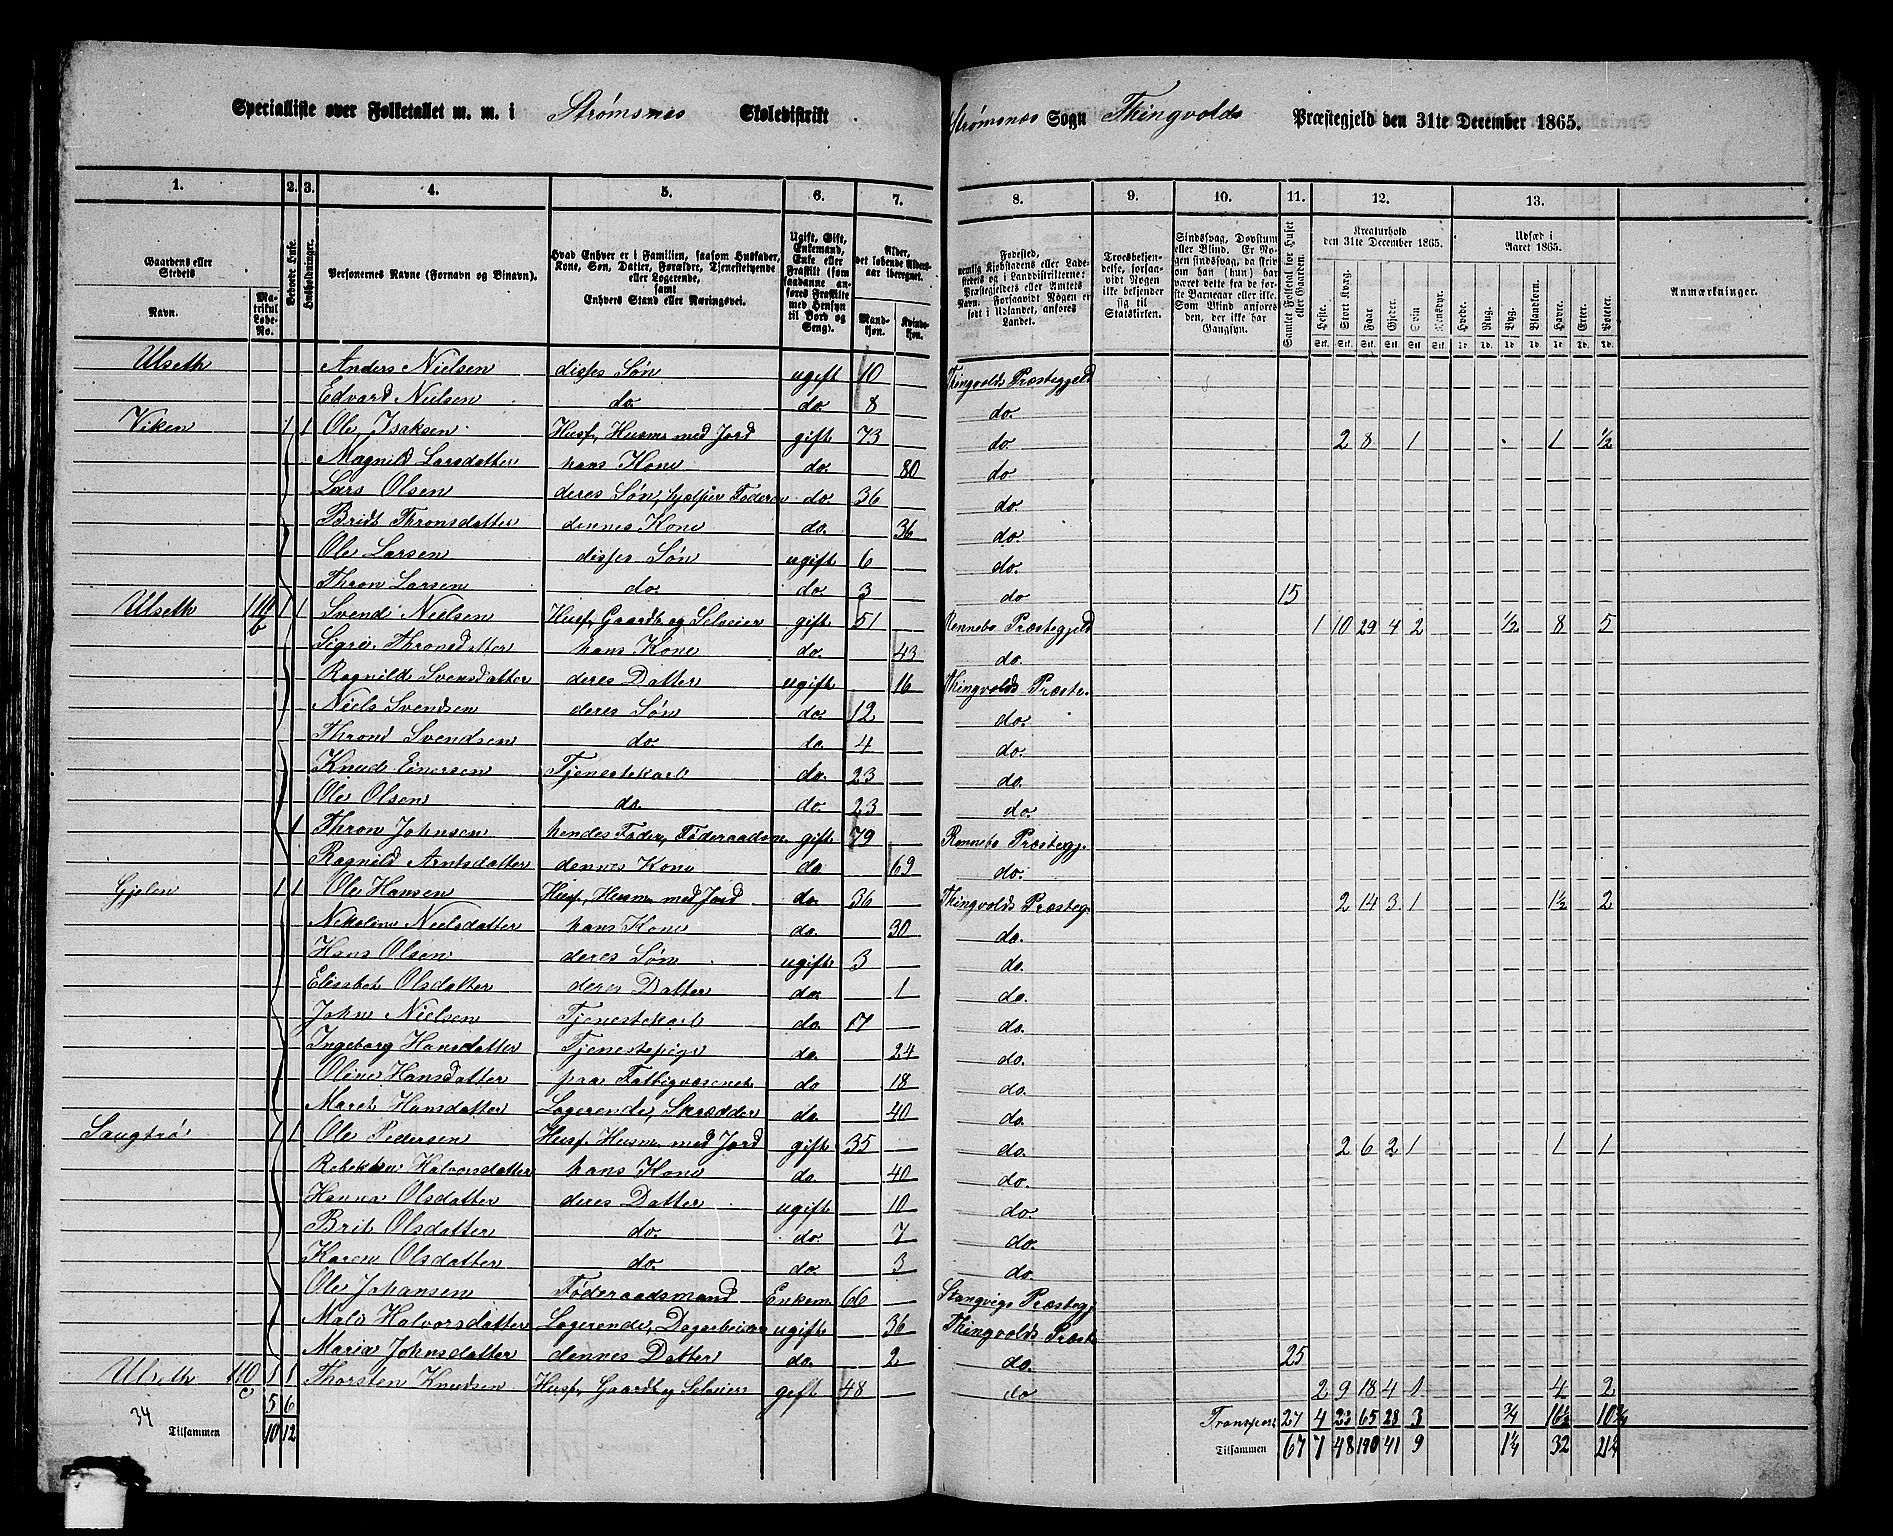 Specialliste over Folketallet m. m. i Strømsnes Skoledistrikt Strømsnæs Sogn Thingvolds Præstegjeld den 31te December 1865.
1. 2. 3. 4. 5. 6. 7. 8. 9. 10. 11. 12. 13.
Gaardens eller Stedets Navn. Matrikul Løbe-No. Beboede Huse. Husholdninger. Personernes Navne (Fornavn og Binavn). Hvad Enhver er i Familien, saasom Husfader, Kone, Søn, Datter, Forældre, Tjenestetyende eller Logerende, samt Enhvers Stand eller Næringsvei. Alder, det løbende Aldersaar iberegnet. Mandkjøn. Kvindekjøn. Fødested, Troesbekjendelse, forsaavidt Nogen ikke bekjender sig til Statskirken. Samlet Folketal for Huset eller Gaarden. Kreaturhold den 31te December 1865. Udsæd i Aaret 1865. Anmærkninger.
Heste. Stort Kvæg. Faar. Gjeder. Svin. Rensdyr. Hvede. Rug. Byg. Blandkorn. Havre. Erter. Poteter.
Ulseth Anders Nielsen disses Søn ugift 10 Thingvolds Præstegjeld
Edvard Nielsen do. do. 8 do.
Viken 1 1 Ole Isaksen Husf, Husm med Jord gift 73 do 2 8 1 1 1/2
Magnild Larsdatter hans Kone do. 80 do
Lars Olsen deres Søn, hjælper Faderen do. 36 do
Brit Thronsdatter dennes Kone do. 36 do.
Ole Larsen disses Søn ugift 6 do.
Thron Larsen do. do. 3 do 15
Ulseth 110 b 1 1 Svend Nielsen Husf, Gaardb og Selveier gift 51 Rennebo Præstegjeld 1 10 29 4 2 1/2 8 5
Sigri Thronsdatter hans Kone do. 43 do.
Ragnild Svensdatter deres Datter ugift 16 Thingvolds Præste.
Niels Svendsen deres Søn do. 12 do.
Thrond Svendsen do. do. 4 do.
Knud Einersen Tjenestekarl do. 23 do.
Ole Olsen do. do. 23 do.
1 Thron Johnsen hendes Fader, Føderaadsm. gift 79 Rennebo Præstegj.
Ragnild Arntsdatter dennes Kone do 69 do.
Gjelen 1 1 Ole Hansen Husf, Husm. med Jord do. 36 Thingvolds Præsteg. 2 14 3 1 1 1/2 2
Nikoline Nielsdatter hans Kone do. 30 do.
Hans Olsen deres Søn ugift 3 do.
Elisabet Olsdatter deres Datter do. 1 do.
John Nielsen Tjenestekarl do. 17 do.
Ingeborg Hansdatter Tjenestepige do. 24 do.
Oline Hansdatter paa Fattigvæsenet do 18 do.
Maret Hansdatter Logerende, Skrædder do. 40 do.
Saugtrø 1 1 Ole Pedersen Husf, Husm. med Jord gift 35 do. 2 6 2 1 1 1
Rebekka Halvorsdatter hans Kone do. 40 do.
Hanna Olsdatter deres Datter ugift 10 do.
Brit Olsdatter do. do. 7 do.
Karen Olsdatter do. do. 3 do.
Ole Johansen Føderaadsmand Enkem. 66 Stangvigs Præstegj.
Mali Halvorsdatter Logerende, Dagarbeider ugift 36 Thingvolds Præst.
Maria Johnsdatter dennes Datter do. 2 do. 25
Ulseth 110 c 1 1 Thorsten Knudsen Husf, Gaardb og Selveier gift 48 do 2 9 18 4 1 4 2
5 6
34 Transport 27 4 23 65 28 3 3/4 16 1/2 10 3/4
Tilsammen 10 12 Tilsammen 67 7 48 190 41 9 1 1/4 32 21 1/4